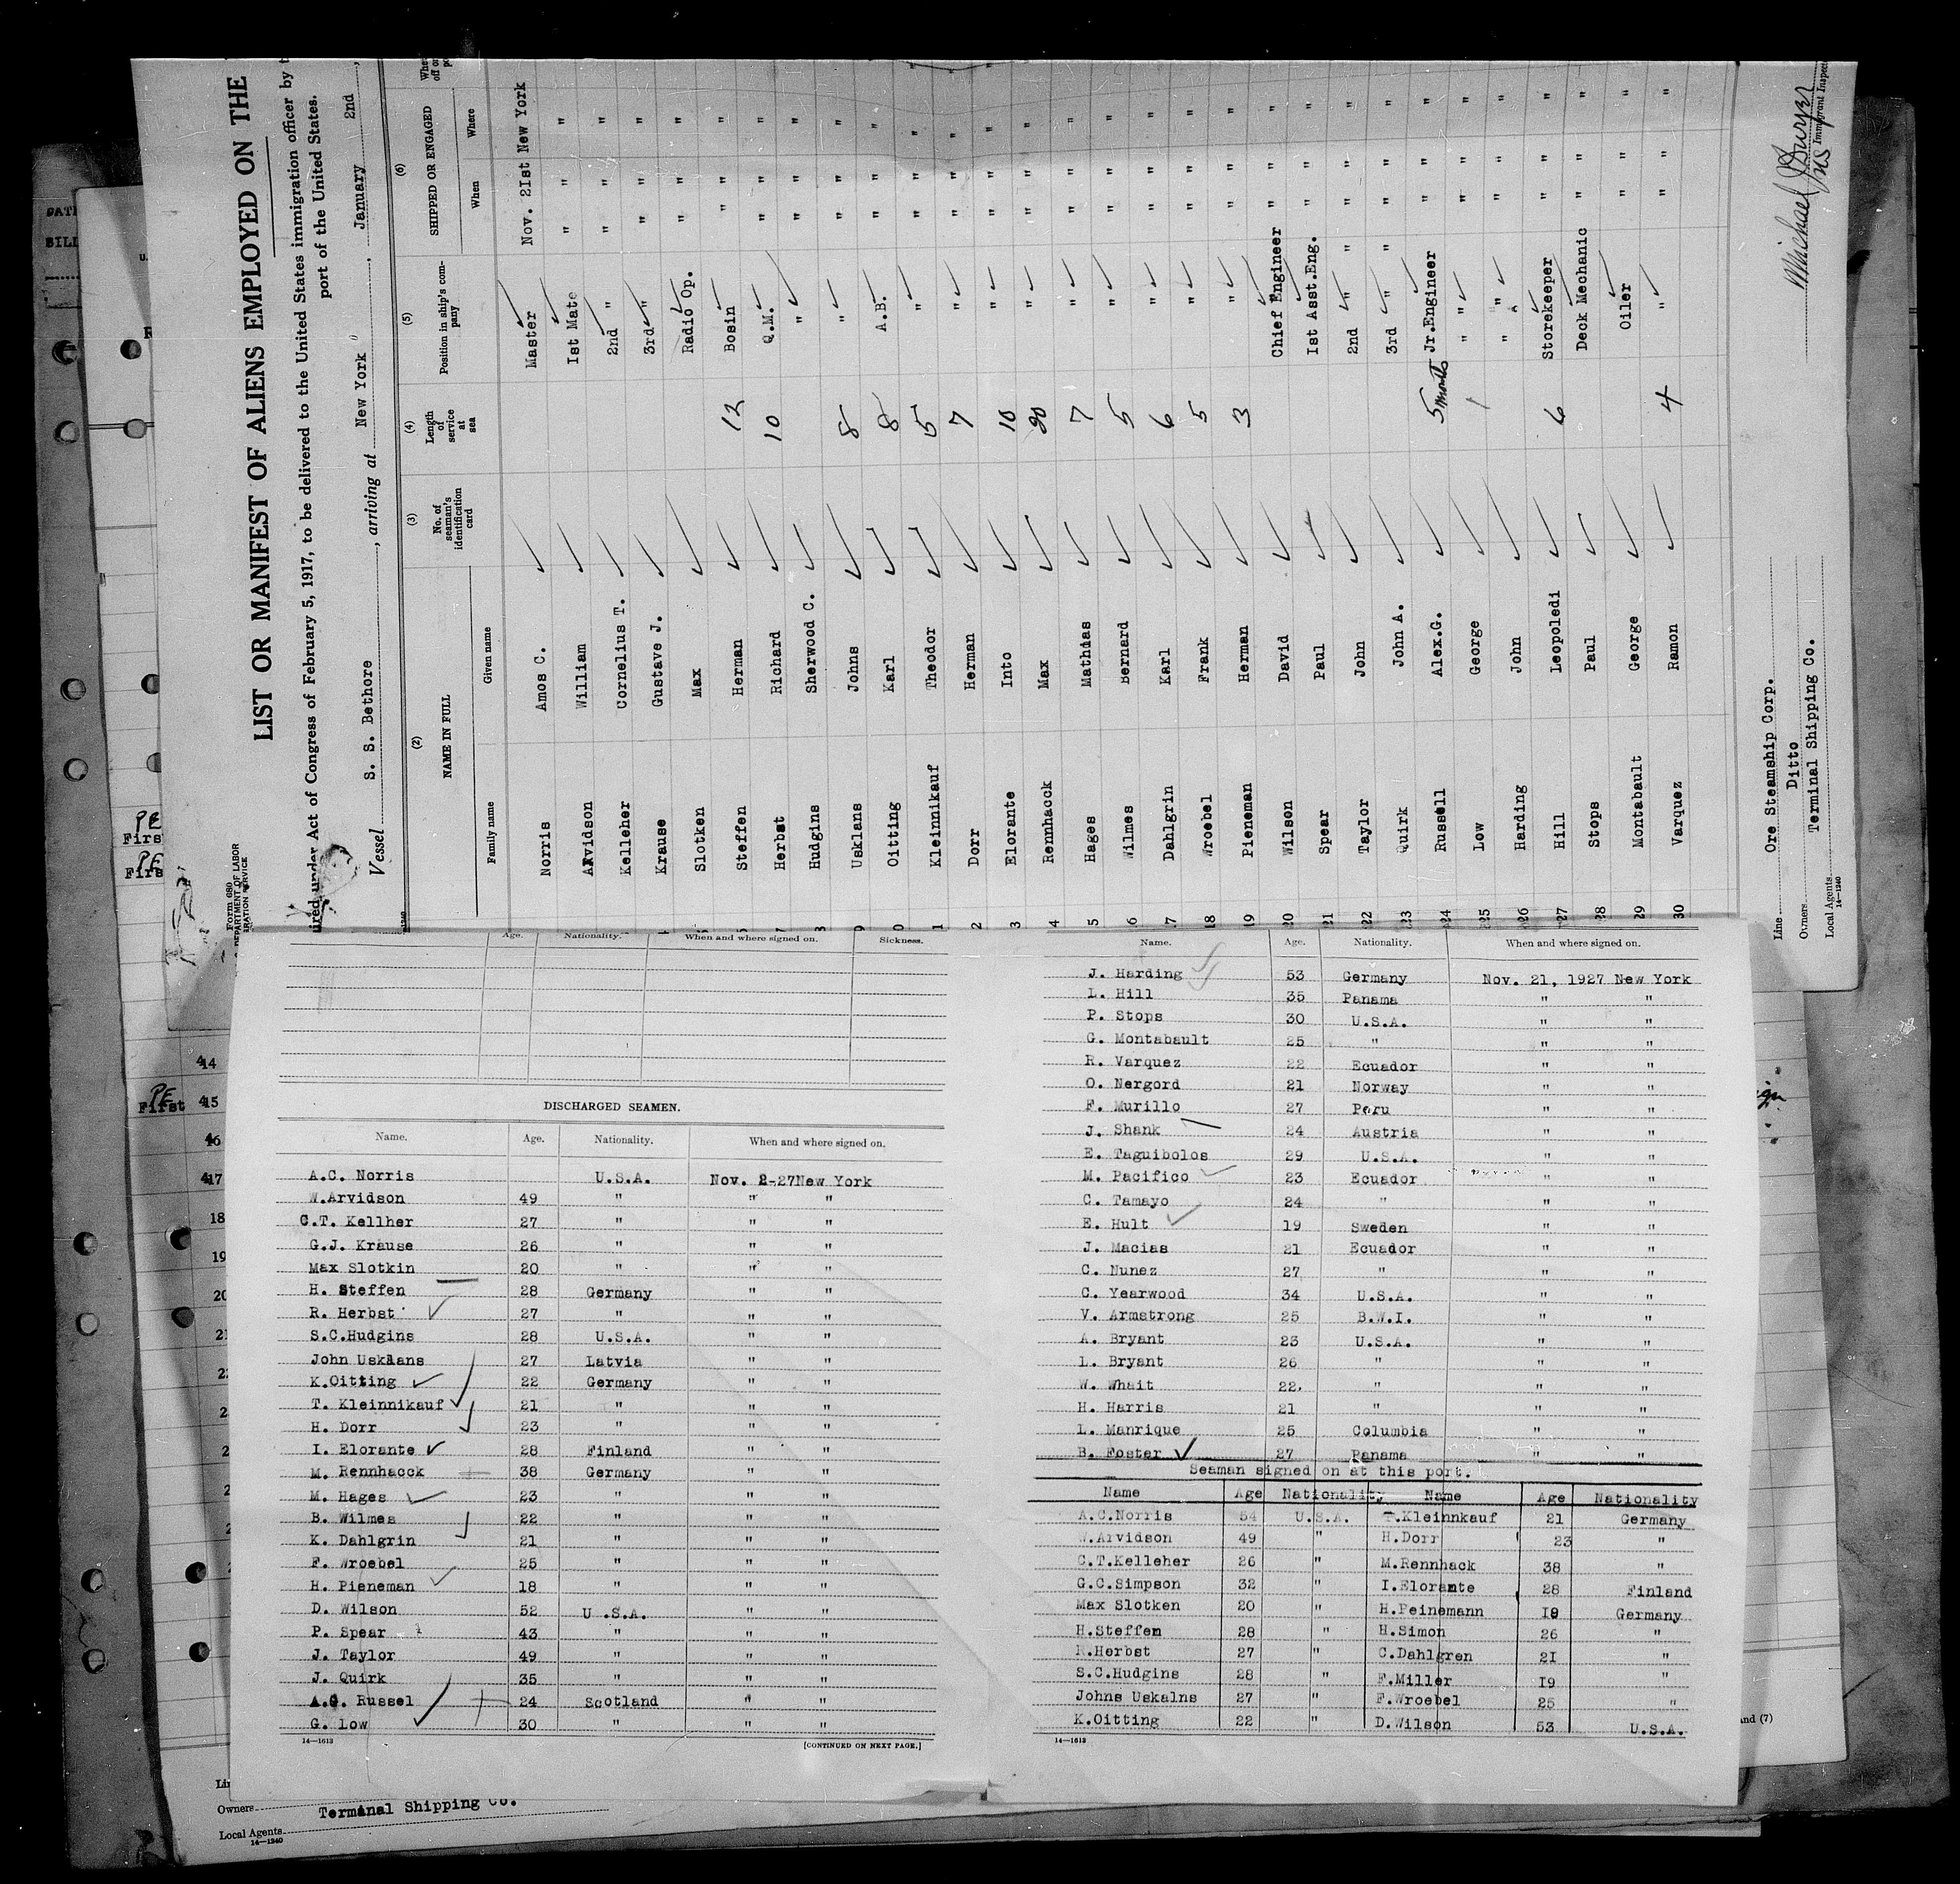 LIST OR MANIFEST OF ALIENS EMPLOYED ON THE
Act of Congress of February 5, 1917, to be delivered to the United States immigration officer by
port of the United States.
Vessel S. S. Bethore, arriving at New York, January 2nd,
Form 689
DEPARTMENT OF LABOR
(2) (3) (4) (5) (6)
NAME IN FULL No. of seaman's identification card Length of service at sea Position in ship's company SHIPPED OR ENGAGED
Family name Given name When Where
Norris Amos C. Master Nov. 21st New York
Arvidson William 1st Mate " "
Kelleher Cornelius T. 2nd " " " "
Krause Gustave J. 3rd " " " "
Slotken Max Radio Op. " " "
Steffen Herman 12 Bosin " " "
Herbst Richard 10 Q.M. " " "
Hudgins Sherwood C. " " " "
9 Usklans Johns 8 " " " "
0 Oitting Karl 8 A.B. " " "
1 Kleinnikauf Theodor 5 " " " "
2 Dorr Herman 7 " " " "
3 Elorante Into 10 " " " "
4 Rennhacck Max 20 " " " "
5 Hages Mathias 7 " " " "
16 Wilmes Bernard 5 " " " "
17 Dahlgrin Karl 6 " " " "
18 Wroebel Frank 5 " " " "
19 Pieneman Herman 3 " " " "
20 Wilson David Chief Engineer " " "
21 Spear Paul 1st Asst.Eng. " " "
22 Taylor John 2nd " " " " "
23 Quirk John A. 3rd " " " " "
24 Russell Alex.G. 5 months Jr.Engineer " " "
25 Low George 1 " " " " "
26 Harding John " " " " "
27 Hill Leopoledi 6 Storekeeper " " "
28 Stops Paul Deck Mechanic " " "
29 Montabault George Oiler " " "
30 Varquez Ramon 4 " " " "
Line Ore Steamship Corp.
Owners Ditto
Local Agents Terminal Shipping Co.
14—1240
Michael J
Immigrant Inspector
Age. Nationality. When and where signed on. Sickness.
DISCHARGED SEAMEN.
Name. Age. Nationality. When and where signed on.
A.C. Norris U.S.A. Nov. 2-27New York
W.Arvidson 49 " " "
C.T. Kellher 27 " " "
G.J. Krause 26 " " "
Max Slotkin 20 " " "
H. Steffen 28 Germany " "
R. Herbst 27 " " "
S.C.Hudgins 28 U.S.A. " "
John Usklans 27 Latvia " "
K.Oitting 22 Germany " "
T. Kleinnikauf 21 " " "
H. Dorr 23 " " "
I. Elorante 28 Finland " "
M. Rennhacck 38 Germany " "
M. Hages 23 " " "
B. Wilmes 22 " " "
K. Dahlgrin 21 " " "
F. Wroebel 25 " " "
H. Pieneman 18 " " "
D. Wilson 52 U .S.A. " "
P. Spear 43 " " "
J. Taylor 49 " " "
J. Quirk 35 " " "
A.G. Russel 24 Scotland " "
G. Low 30 " " "
14—1613 [CONTINUED ON NEXT PAGE.]
Name. Age. Nationality. When and where signed on.
J. Harding 53 Germany Nov. 21, 1927 New York
L. Hill 35 Panama " "
P. Stops 30 U.S.A. " "
G. Montabault 25 " " "
R. Varquez 22 Ecuador " "
O. Nergord 21 Norway " "
F. Murillo 27 Peru " "
J. Shank 24 Austria " "
E. Taguibolos 29 U.S.A. " "
M. Pacifico 23 Ecuador " "
C. Tamayo 24 " " "
E. Hult 19 Sweden " "
J. Macias 21 Ecuador " "
C. Nunez 27 " " "
C. Yearwood 34 U.S.A. " "
V. Armstrong 25 B.W.I. " "
A. Bryant 23 U.S.A. " "
L. Bryant 26 " " "
W. Whait 22. " " "
H. Harris 21 " " "
L. Manrique 25 Columbia " "
B. Foster 27 Panama " "
Seaman signed on at this port.
Name Age Nationality Name Age Nationality
A.C.Norris 54 U.S.A. T.Kleinnkauf 21 Germany
W.Arvidson 49 " H.Dorr 23 "
C.T.Kelleher 26 " M.Rennhack 38 "
G.C.Simpson 32 " I.Elorante 28 Finland
Max Slotken 20 " H.Peinemann 18 Germany
H.Steffen 28 " H.Simon 26 "
R.Herbst 27 " C.Dahlgren 21 "
S.C.Hudgins 28 " F.Miller 19 "
Johns Uskalns 27 " F.Wroebel 25 "
K.Oitting 22 " D.Wilson 53 U.S.A.
14—1613
and (7)
Owners
Terminal Shipping Co.
Local Agents
14—1240
PE
First
PE
First
14
PE
First 15
16
17
18
19
20